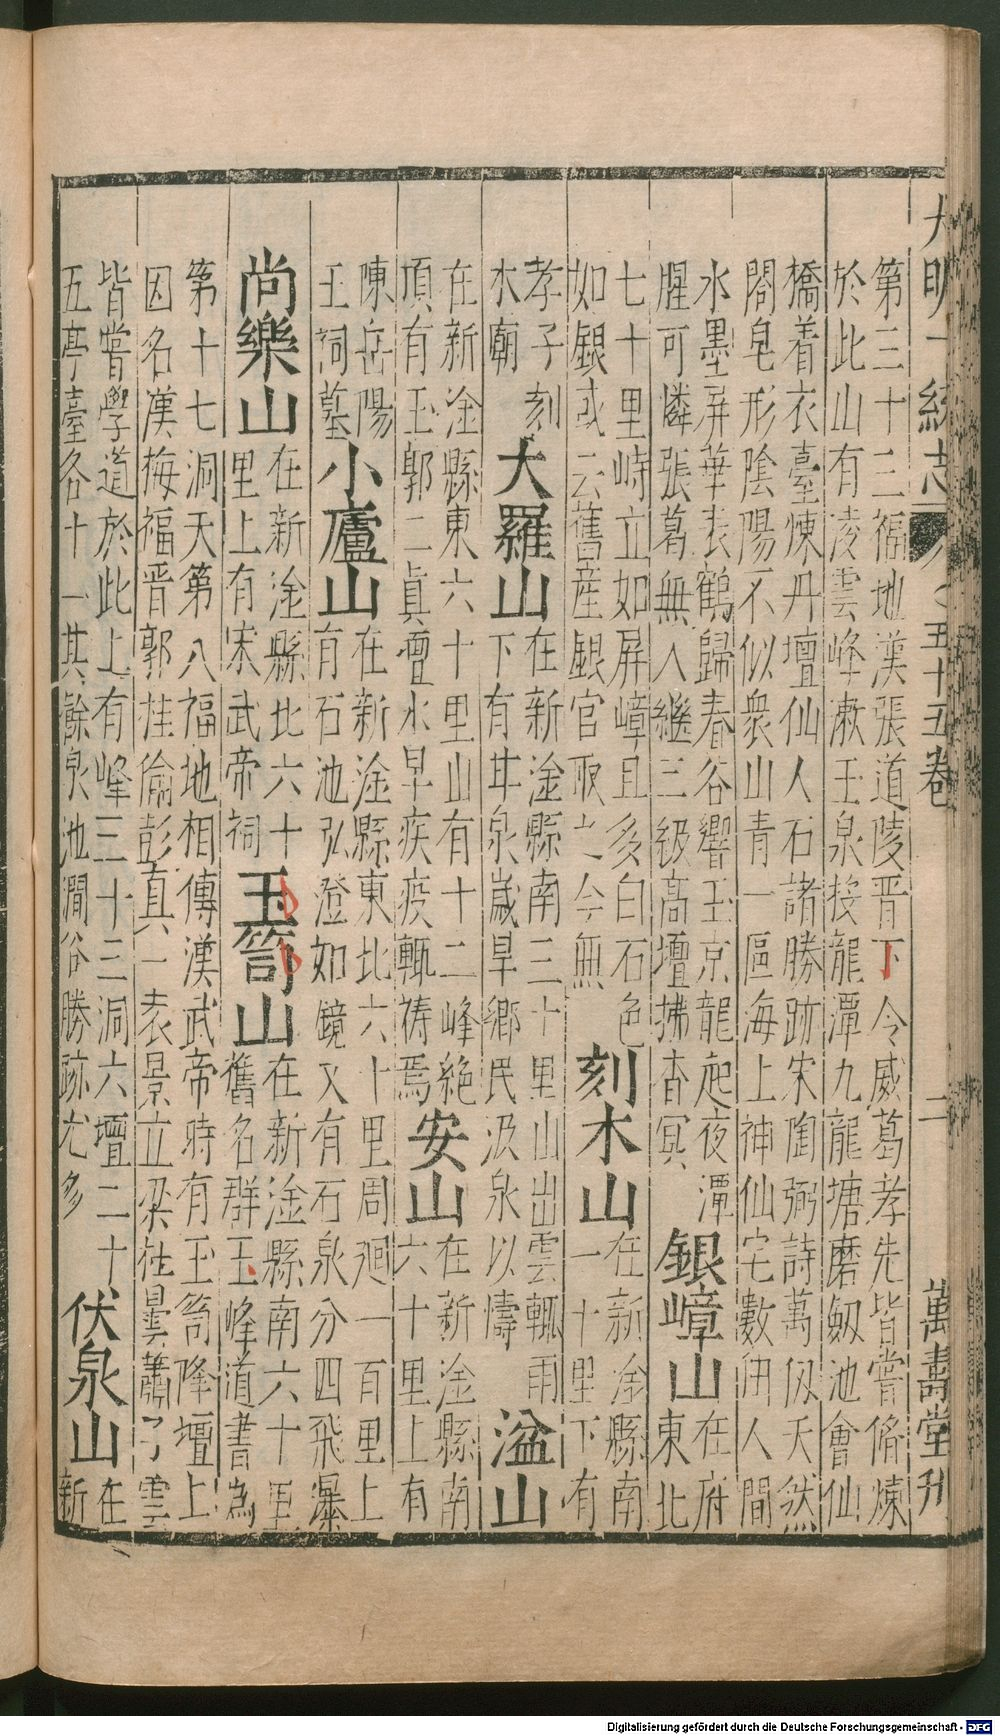 大明一統志 五十五卷 二 萬壽堂刋
第三十三福地漢張道陵晋丁令威葛孝先皆嘗脩煉
於此山有凌雲峰漱玉泉按龍潭九龍塘磨劔池會仙
橋着衣臺煉丹壇仙人石諸勝跡宋陶弼詩萬仭天然
閤皂形陰陽不似衆山青一區海上神仙宅數伷人間
水墨屏華表鶴歸春谷響玉京龍起夜潭
腥可憐張葛無人繼三級高壇拂杳冥
銀嶂山
在府
東北
七十里峙立如屏嶂且多白石色
如銀或云舊産銀官取之今無
刻木山
在新淦縣南
一十里下有
孝子刻
木廟
大羅山
在新淦縣南三十里山出雲輒雨
下有井泉歲旱鄉民汲泉以禱
湓山
在新淦縣東六十里山有十二峰絶
頂有玉郭二眞壇水旱疾疫輒祷焉
安山
在新淦縣南
六十里上有
陳岳陽
王祠墓
小廬山
在新淦縣東北六十里周廻一百里上
有石池泓澄如鏡又有石泉分四飛瀑
尚樂山
在新淦縣北六十
里上有宋武帝祠
玉笥山
在新淦縣南六十里
舊名群玉峰道書為
第十七洞天第八福地相傳漢武帝時有玉笥降壇上
因名漢梅福晋郭桂倫彭真一袁景立梁杜曇蕭子雲
皆嘗學道於此上有峰三十三洞六壇二十八
五亭臺各十一其餘泉池澗谷勝跡尤多
伏泉山
在
新
Digitalisierung gefördert durch die Deutsche Forschungsgemeinschaft - DFG